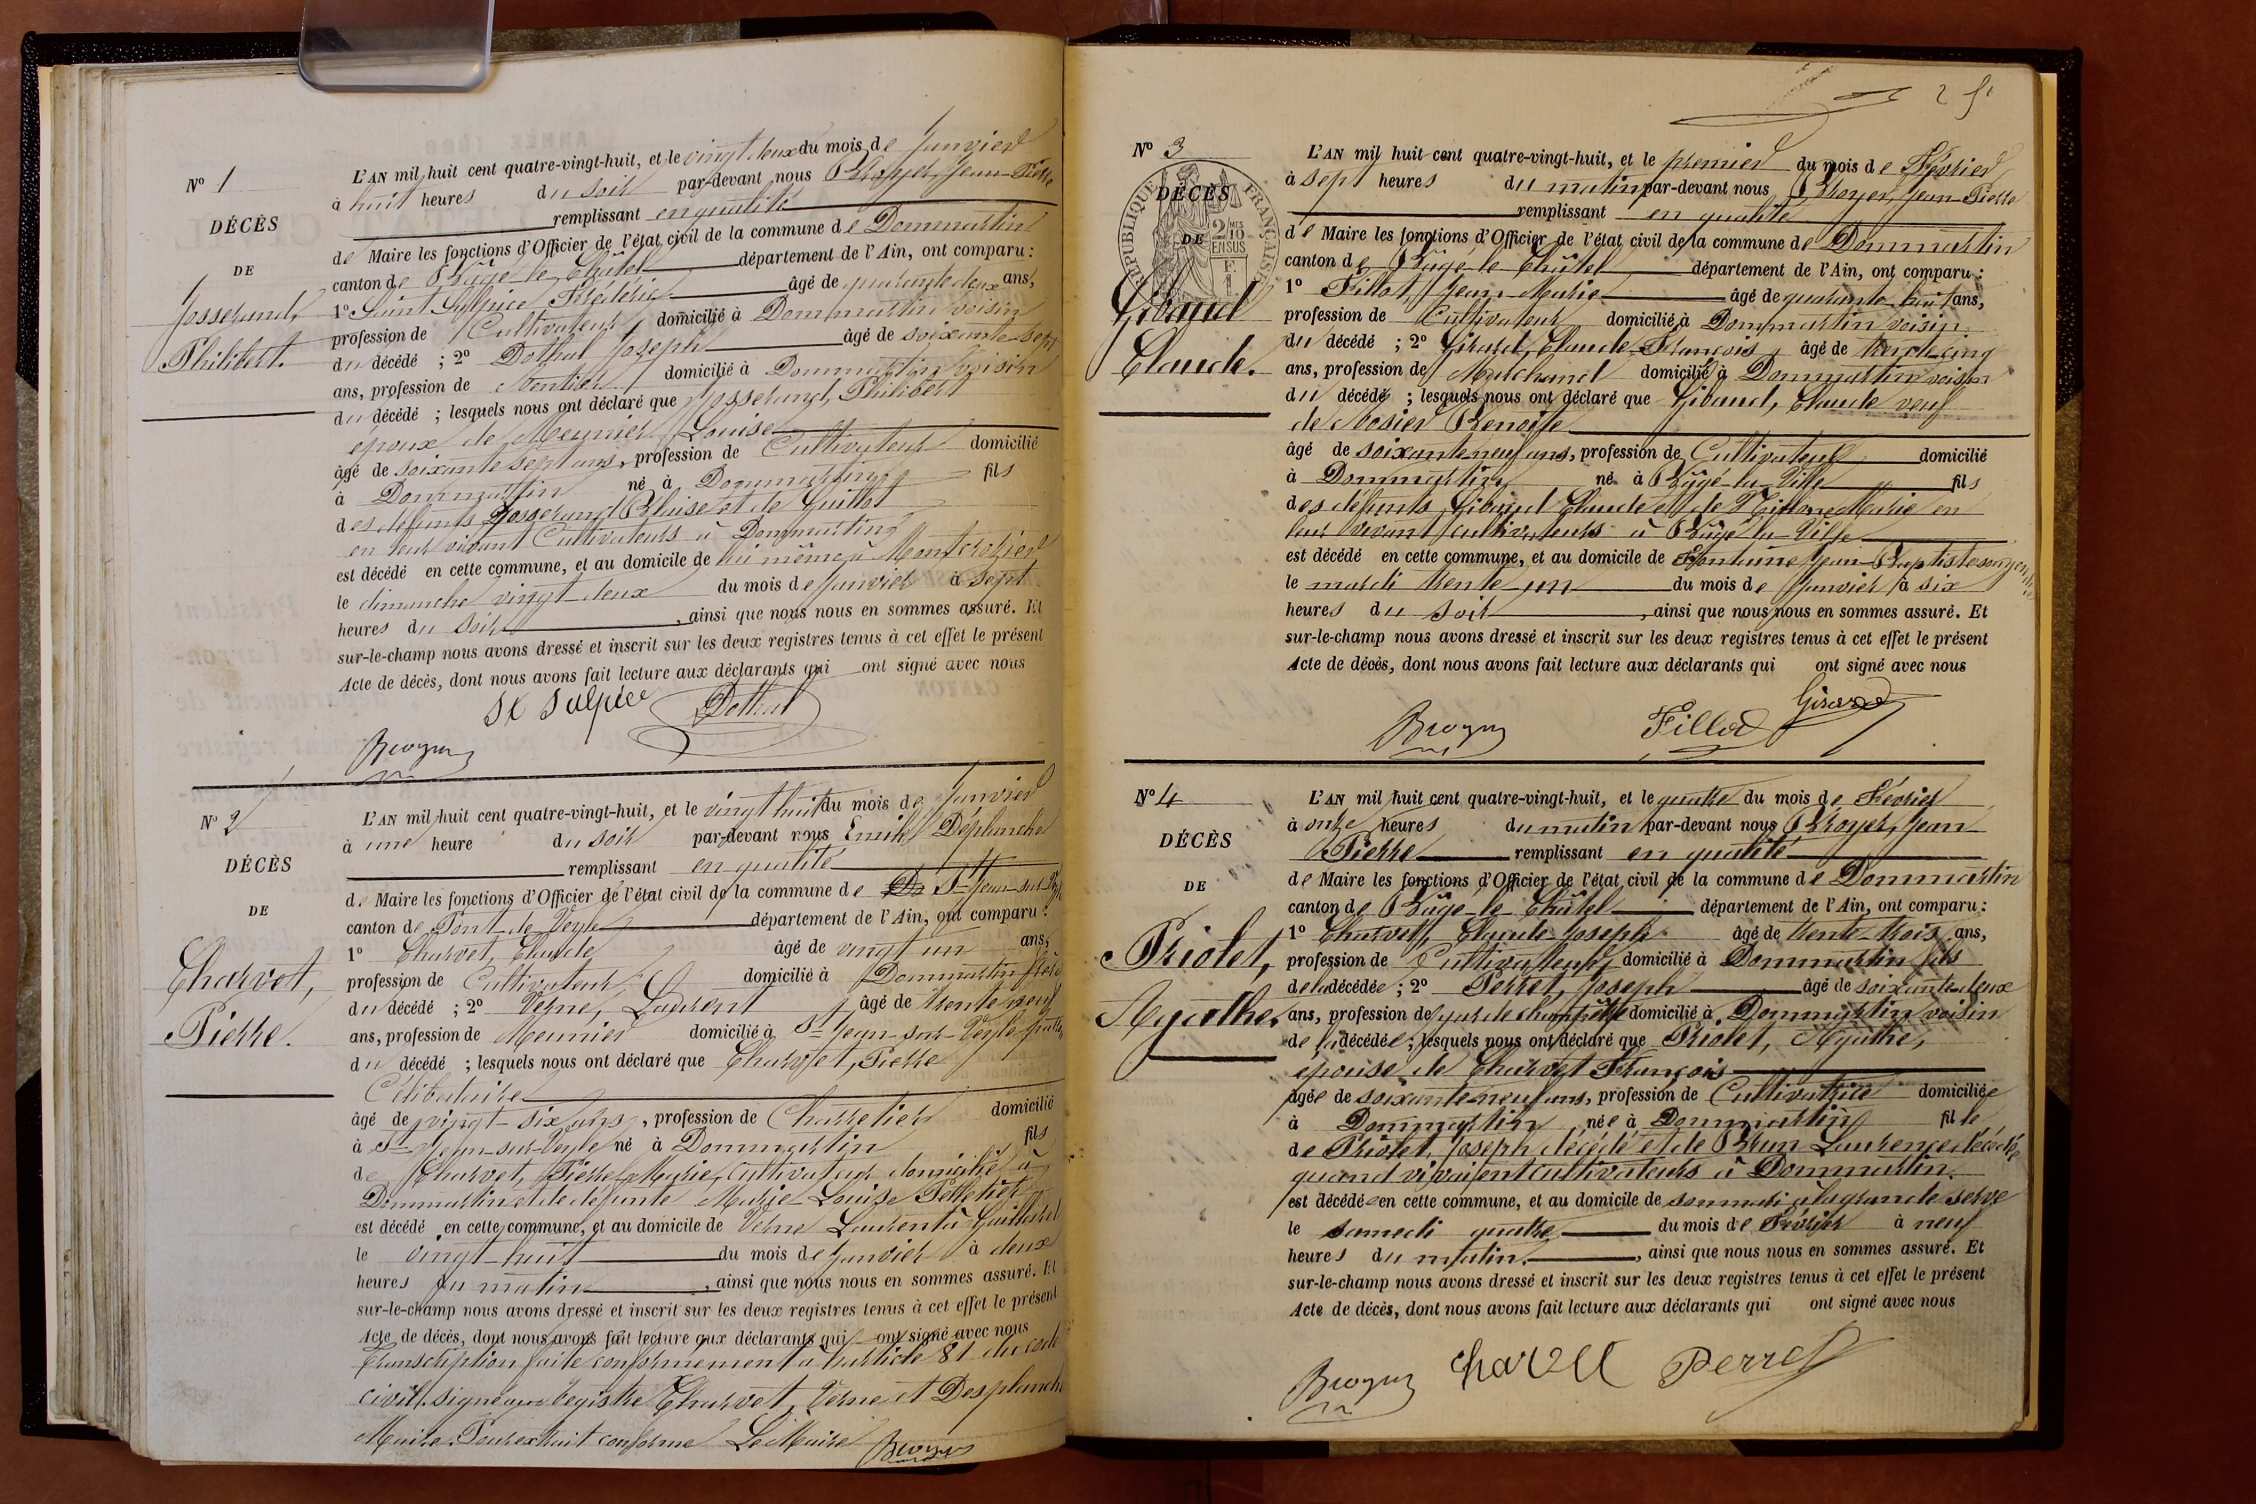 N° 1
DÉCÈS
DE
Josserand,
Philibert.
L'AN mil huit cent quatre-vingt-huit, et le vingt deux du mois de Janvier
à huit heures du soir par-devant nous Broyer, Jean-Pierre
remplissant en qualité
de Maire les fonctions d'Officier de l'état civil de la commune de Dommartin
canton de Bâgé-le-Châtel département de l'Ain, ont comparu :
1° Saint Sulpice Frédéric âgé de quarante deux ans,
profession de Cultivateur domicilié à Dommartin voisin
du décédé ; 2° Dothal Joseph âgé de soixante-sept
ans, profession de domicilié à Dommartin voisin
du décédé ; lesquels nous ont déclaré que Josserand, Philibert
époux de Meunier Louise
âgé de soixante sept ans, profession de Cultivateur domicilié
à Dommartin né à Dommartin fils
des défunts Josserand Blaise et de Guillot
en leur vivant Cultivateurs à Dommartin
est décédé en cette commune, et au domicile de lui même à Montcrozier
le dimanche vingt-deux du mois de Janvier à sept
heures du soir , ainsi que nous nous en sommes assuré. Et
sur-le-champ nous avons dressé et inscrit sur les deux registres tenus à cet effet le présent
Acte de décès, dont nous avons fait lecture aux déclarants qui ont signé avec nous
St Sulpice Dothal
Broyer
N° 2
DÉCÈS
DE
Charvet,
Pierre.
L'AN mil huit cent quatre-vingt-huit, et le vingt huit du mois de Janvier
à une heure du soir par-devant nous Emile Déplanche
remplissant en qualité
de Maire les fonctions d'Officier de l'état civil de la commune de St Jean-sur-Veyle
canton de Pont-de-Veyle département de l'Ain, ont comparu :
1° Charvet, Claude âgé de vingt un ans,
profession de Cultivateur domicilié à Dommartin frère
du décédé ; 2° Verne, Laurent âgé de trente neuf
ans, profession de Meunier domicilié à St Jean-sur-Veyle
du décédé ; lesquels nous ont déclaré que Charvet, Pierre
Célibataire
âgé de vingt-six ans, profession de Charretier domicilié
à St Jean-sur-Veyle né à Dommartin fils
de Charvet, Pierre Marie, Cultivateur domicilié à
Dommartin et de défunte Marie-Louise Pelletier
est décédé en cette commune, et au domicile de Verne Laurent à
le vingt-huit du mois de Janvier à deux
heures du matin , ainsi que nous nous en sommes assuré. Et
sur-le-champ nous avons dressé et inscrit sur les deux registres tenus à cet effet le présent
Acte de décès, dont nous avons fait lecture aux déclarants qui ont signé avec nous
Transcription faite conformément à l'article 81 du code
civil, signé au registre Charvet, Verne et Desplanche
Maire. Pour extrait conforme Le Maire Broyer
25
N° 3
DÉCÈS
DE
RÉPUBLIQUE FRANÇAISE
2/10 EN SUS
Gibaud
Claude.
L'AN mil huit cent quatre-vingt-huit, et le premier du mois de Février
à sept heures du matin par-devant nous Broyer, Jean-Pierre
remplissant en qualité
de Maire les fonctions d'Officier de l'état civil de la commune de Dommartin
canton de Bâgé-le-Châtel département de l'Ain, ont comparu :
1° Fillot, Jean-Marie âgé de quarante huit ans,
profession de Cultivateur domicilié à Dommartin voisin
du décédé ; 2° Girard, Claude-François âgé de trente cinq
ans, profession de Marchand domicilié à Dommartin voisin
du décédé ; lesquels nous ont déclaré que Gibaud, Claude veuf
de Rosier Benoîte
âgé de soixante neuf ans, profession de Cultivateur domicilié
à Dommartin né à Bâgé-la-Ville fils
des défunts Gibaud Claude et de Marie en
leur vivant cultivateurs à Bâgé-la-Ville
est décédé en cette commune, et au domicile de Fontaine Jean-Baptiste son gendre
le mardi trente-un du mois de Janvier à six
heures du soir , ainsi que nous nous en sommes assuré. Et
sur-le-champ nous avons dressé et inscrit sur les deux registres tenus à cet effet le présent
Acte de décès, dont nous avons fait lecture aux déclarants qui ont signé avec nous
Broyer Fillod Girard
N° 4
DÉCÈS
DE
Priolet,
Agathe.
L'AN mil huit cent quatre-vingt-huit, et le quatre du mois de Février
à onze heures du matin par-devant nous Broyer, Jean-
Pierre remplissant en qualité
de Maire les fonctions d'Officier de l'état civil de la commune de Dommartin
canton de Bâgé-le-Châtel département de l'Ain, ont comparu :
1° Charvet, Claude-Joseph âgé de trente-trois ans,
profession de Cultivateur domicilié à Dommartin fils
de la décédée ; 2° Perret, Joseph âgé de soixante-deux
ans, profession de garde champêtre domicilié à Dommartin voisin
de la décédée ; lesquels nous ont déclaré que Priolet, Agathe,
épouse de Charvet François
âgée de soixante neuf ans, profession de Cultivatrice domiciliée
à Dommartin née à Dommartin fille
de Priolet, Joseph décédé et de Brun Laurence décédée
quand vivaient cultivateurs à Dommartin.
est décédée en cette commune, et au domicile de son mari à la grande serve
le samedi quatre du mois de Février à neuf
heures du matin. , ainsi que nous nous en sommes assuré. Et
sur-le-champ nous avons dressé et inscrit sur les deux registres tenus à cet effet le présent
Acte de décès, dont nous avons fait lecture aux déclarants qui ont signé avec nous
Broyer Charvet Perret